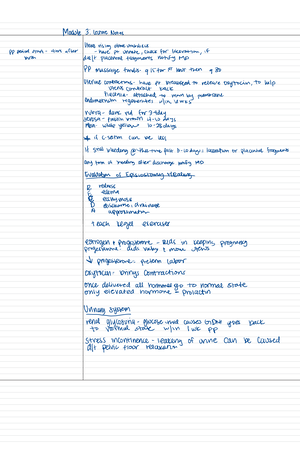 Module 3 Notes
pp period 6wks - 6wks after birth
have rising done
- have pt urinate, check for laceration, if
placental fragments notify MD
PP massage fundus q 15 for 1st hour then q 30
Uterine contractions - have pt breastfeed to release oxytocin, to help
uterus contract back
Endometrium regenerates w/in weeks
rubra - dark red for 3-4 days
serosa - pinkish brown 4-10 days
alba - white yellow 10-28 days
↓ if c-section can be less
If still bleeding after 5-10 days: laceration or placental fragments
any form of bleeding after discharge notify MD
Evaluation of Episiotomy Healing
R redness
E edema
E ecchymosis
D discharge, drainage
A approximation
teach kegel exercises
Estrogen & progesterone - aids in keeping pregnancy
progesterone: aids baby & mom
↓ progesterone: preterm labor
oxytocin - brings contractions
once delivered all hormones go to normal state
only elevated hormone = prolactin
Urinary System
renal glycosuria - glucose goes back
to normal state w/in 1 wk pp
stress incontinence - leaking of urine can be caused
d/t pelvic floor relaxation